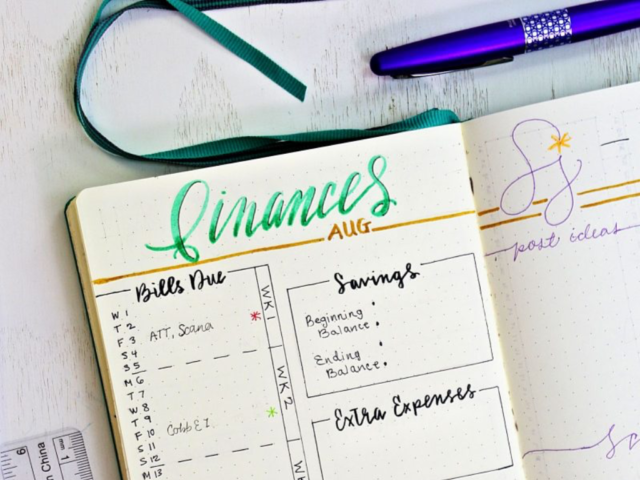 Finances
AUG
Bills Due
W 1
T 2
F 3 ATT, Scana
S 4
S 5
M 6
T 7
W 8
T 9
F 10 Cobb EI
S 11
S 12
M 13
WK 1
WK 2
Savings
Beginning
Balance
Ending
Balance
Extra Expenses
SJ
post ideas
6
in China
1